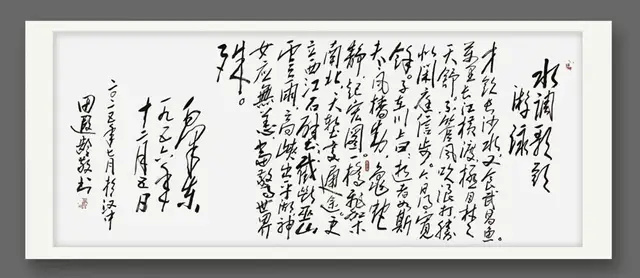 水调歌头
游泳
才饮长沙水又食武昌鱼。
万里长江横渡极目楚
天舒。不管风吹浪打胜
似闲庭信步。今日得宽
馀。子在川上曰逝者如斯
夫。风樯动龟蛇
静起宏图一桥飞架
南北天堑变通途更
立西江石壁截断巫山
雲雨高峡出平湖神
女应無恙當驚世界
殊。
毛泽东
一九五六年
十二月五日
二〇二五年七月於汉中
田遐龄敬书